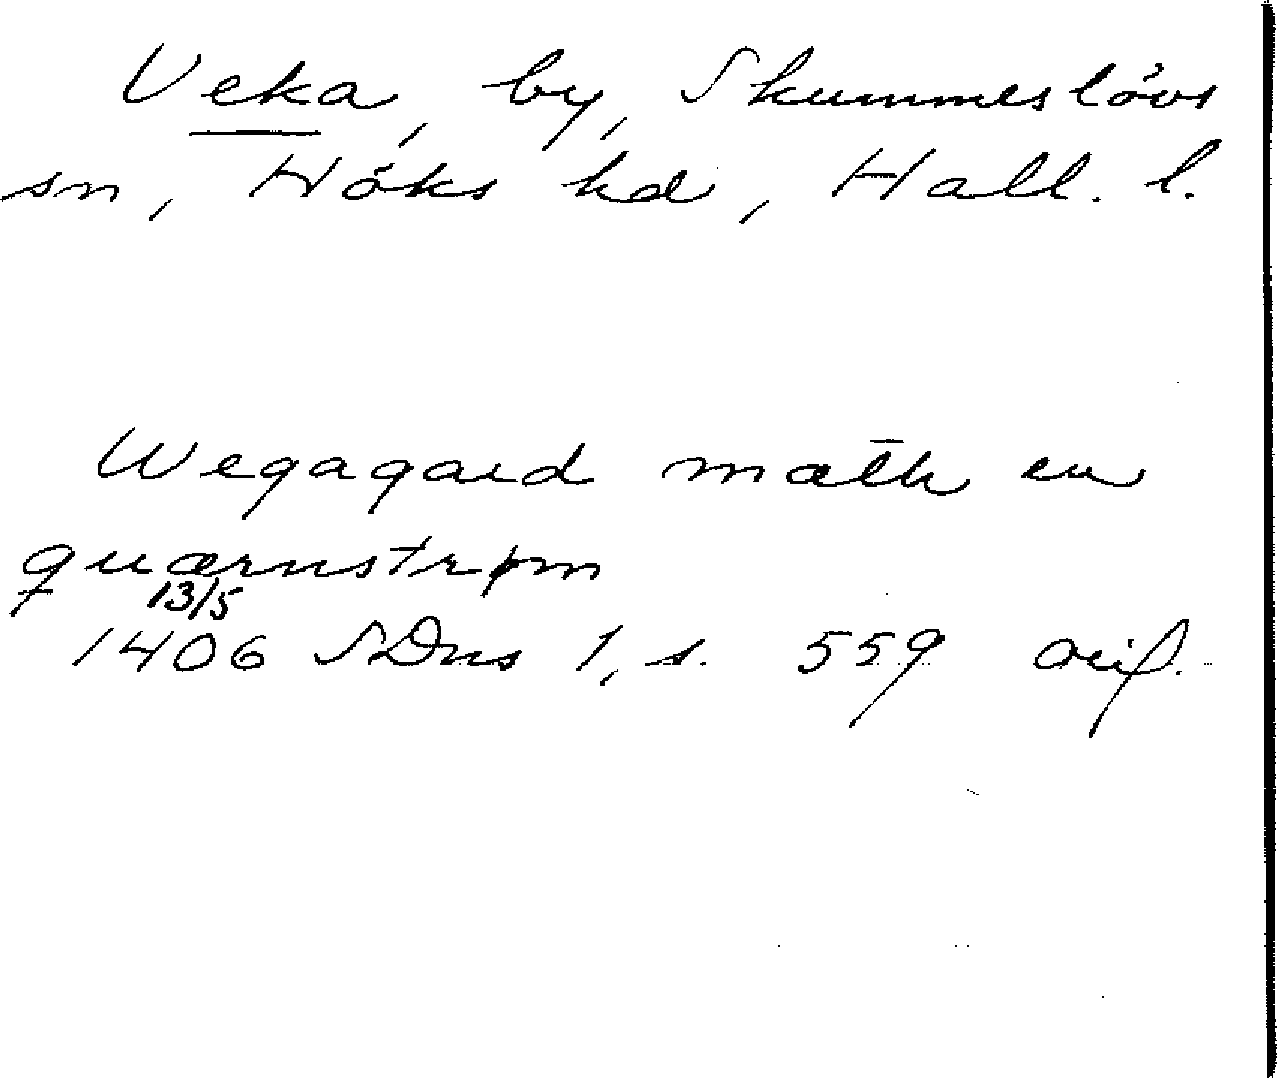 Veka, by, Skummeslövs
sn, Höks hd, Hall. l.
Wegagard mæth en
quærnstrøm
13/5
1406 SDns 1, s. 559 orig.